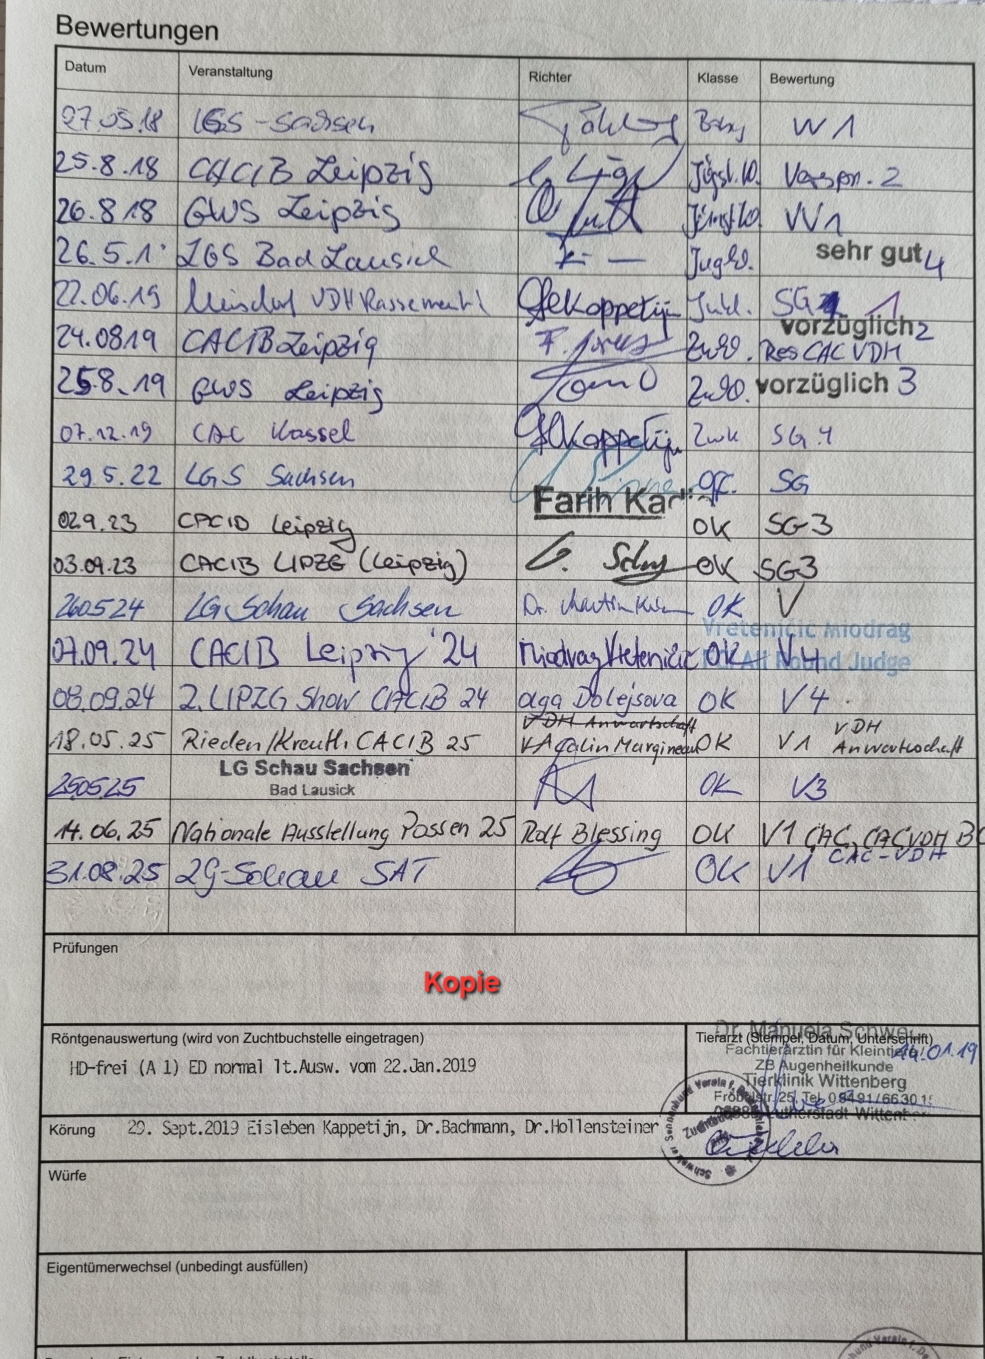 Bewertungen
Datum Veranstaltung Richter Klasse Bewertung
27.05.18 LGS-Sachsen Baby VV 1
25.8.18 CACIB Leipzig Jüngst.kl. Verspr. 2
26.8.18 GWS Leipzig Jüngstkl. VV1
26.5.1 LGS Bad Lausick Jugkl. sehr gut 4
22.06.19 VDH SG 1
24.0819 CACIB Leipzig Zwkl. vorzüglich 2
Res CAC VDH
25.8.19 GWS Leipzig Zwkl. vorzüglich 3
07.12.19 CAC Kassel Zwk SG
29.5.22 LGS Sachsen Off. SG
02.9.23 CACIB Leipzig Farih OK SG-3
03.09.23 CACIB LIPZG (Leipzig) OK SG3
260524 LG Schau Sachsen Dr. OK V
Vretenicic Miodrag
07.09.24 CACIB Leipzig '24 Miodrag Vretenicic OK V4
All Round Judge
08.09.24 2. LIPZG Show CACIB 24 Olga Dolejsova OK V4
VDH Anwartschaft
18.05.25 Rieden/Kreuth CACIB 25 Margineau OK V1 VDH
Anwartschaft
LG Schau Sachsen
Bad Lausick
250525 OK V3
14.06.25 Nationale Ausstellung Possen 25 Ralf Blessing OK V1 CAC, CACVDH
CAC-VDH
31.08.25 OK V1
Prüfungen
Kopie
Röntgenauswertung (wird von Zuchtbuchstelle eingetragen)
HD-frei (A 1) ED normal lt.Ausw. vom 22.Jan.2019
Tierarzt (Stempel, Datum, Unterschrift)
Dr. Manuela
Fachtierärztin für Kleintiere
14.01.19
ZB Augenheilkunde
Tierklinik Wittenberg
Körung 29. Sept.2019 Eisleben Kappetijn, Dr.Bachmann, Dr.Hollensteiner
Würfe
Eigentümerwechsel (unbedingt ausfüllen)